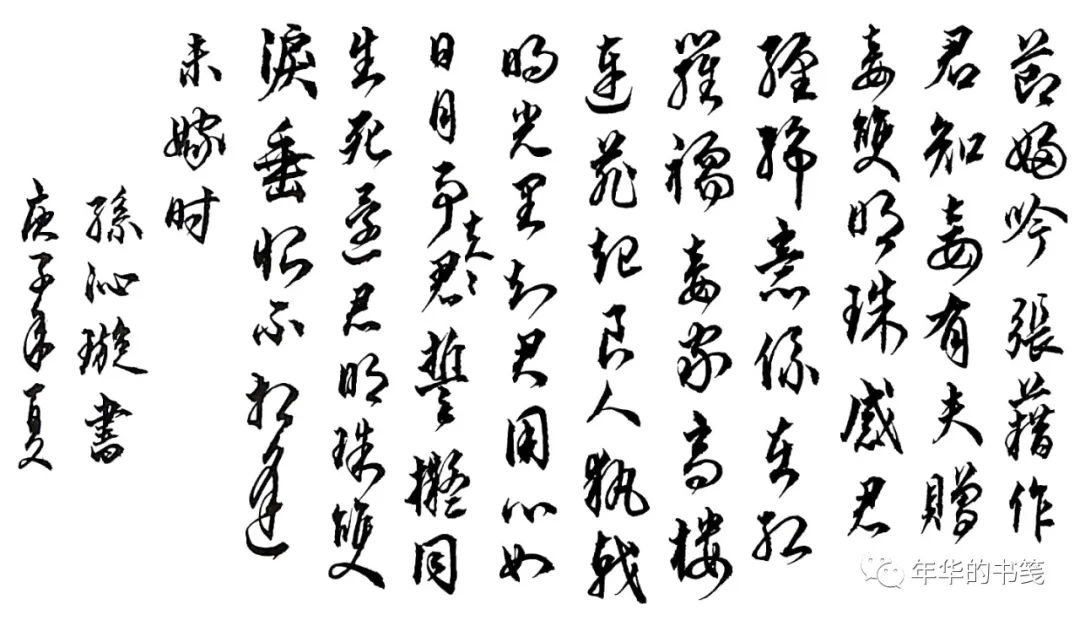 節婦吟 張藉作
君知妾有夫贈
妾雙明珠感君
纏綿意係在紅
羅襦妾家高樓
連苑起良人執戟
明光里知君用心如
日月事君夫誓擬同
生死還君明珠雙
淚垂恨不相逢
未嫁时
孫沁璇書
庚子年夏
年华的书笺